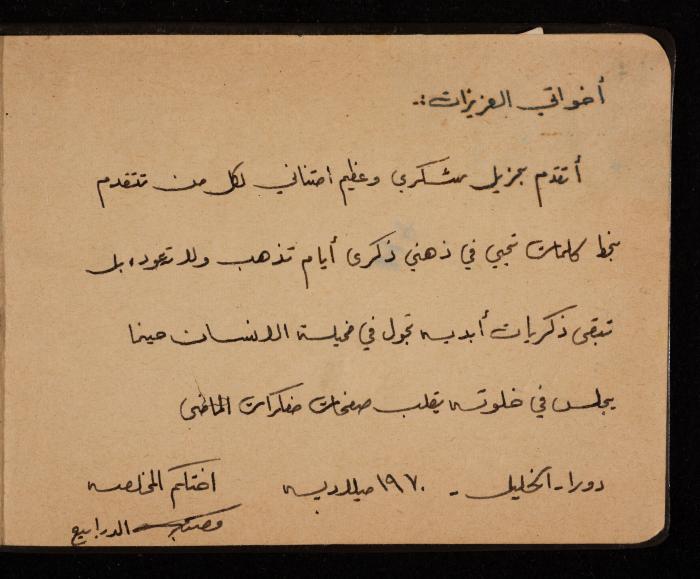 أخواتي العزيزات :-
أتقدم بجزيل شكري وعظيم امتناني لكل من تتقدم
بخط كلمات تحيي في ذهني ذكرى أيام تذهب ولا تعود، بل
تبقى ذكريات أبديه تجول في مخيلة الانسان حينما
يجلس في خلوته يقلب صفحات مفكرات الماضي
دورا - الخليل - ١٩٧٠ ميلاديه اختكم المخلصه
الدرابيع